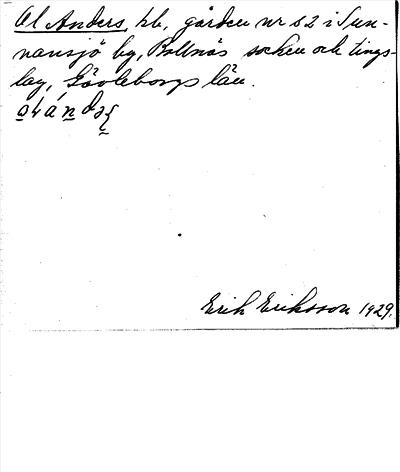 Ol Anders, hb, gården nr 12 i Sun-
nansjö by, Bollnäs socken och tings-
lag, Gävleborgs län.
Erik Eriksson 1929.